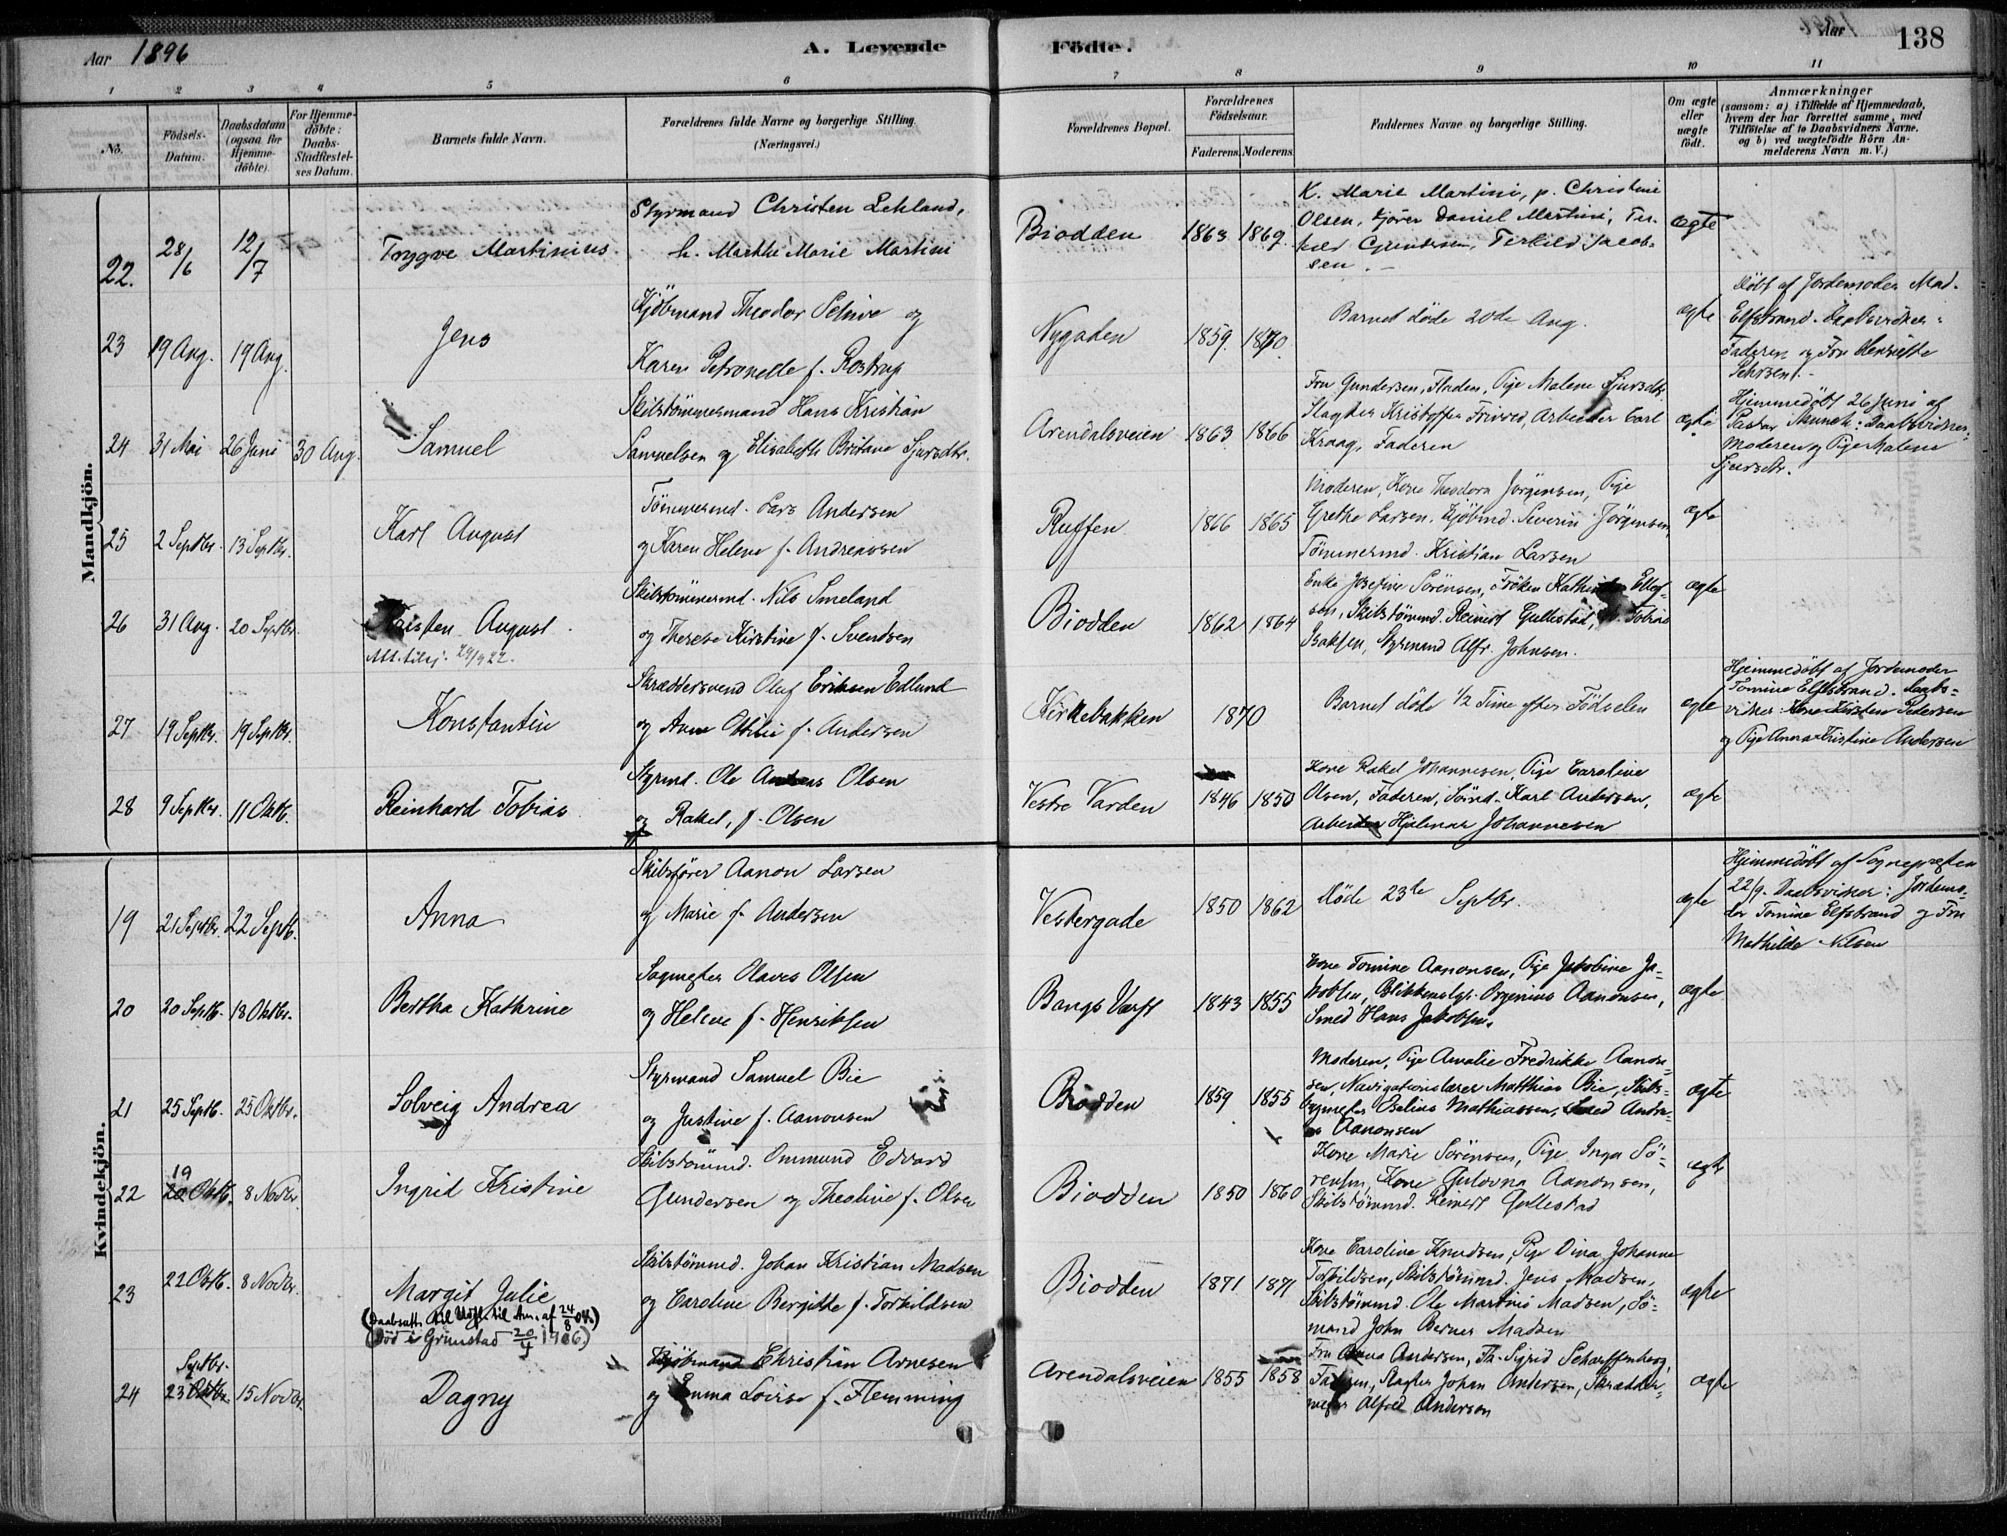 Aar 1896
A. Levende Födte.
Aar 1896
138
1 2 3 4 5 6 7 8 9 10 11
No.
Födsels-Datum.
Daabsdatum (ogsaa for Hjemmedöbte).
For Hjemmedöbte: Daabs-Stadfæstelses Datum.
Barnets fulde Navn.
Forældrenes fulde Navne og borgerlige Stilling. (Næringsvei.)
Forældrenes Bopæl.
Forældrenes Födselsaar.
Faderens. Moderens.
Faddernes Navne og borgerlige Stilling.
Om ægte eller uægte födt.
Anmærkninger
(saasom: a) i Tilfælde af Hjemmedaab, hvem der har forrettet samme, med Tilföielse af to Daabsvidners Navne, og b) ved uægtefödte Börn Anmelderens Navn m. V.)
Mandkjön.
22. 28/6 12/7 Trygve Martinius
Styrmand Christen Lehland,
h. Marthe Marie Martini
Biodden 1863 1869
K. Marie Martini, p. Christine
Olsen, Kjörer Daniel Martini, Ter-
kild Gundersen, Terkild Jacob-
sen.
ægte
23 19 Aug. 19 Aug. Jens
Kjöbmand Theodor og
Karen Petronelle f. Rostrup
Nygaden 1859. 1870.
Barnet döde 20de Aug.
ægte
Döbt af Jordemoder Mad.
Elfstrand. Daabsvidner:
Faderen og Fru Henriette
24 31 Mai 26 Juni 30 Aug. Samuel
Skibstömmermand Hans Kristian
Samuelsen og Elisabeth Britane Sjursdtr.
Arendalsveien 1863 1866
Fru Gundersen, Pige Malene Sjursdtr.
Slagter Kristoffer Arbeider Carl
Kraag, Faderen
ægte
Hjemmedöbt 26 Juni af
Pastor Munch: Daabsvidner:
Moderen og Pige Malene
Sjursdtr.
25 2 Septbr. 13 Septbr. Karl August
Tömmermd. Lars Andersen
og Karen Helene f. Andreassen
Ruffen 1866 1865
Moderen, Kone Theodora Jörgensen, Pige
Grethe Larsen, Kjöbmd. Severin Jörgensen,
Tömmermd. Kristian Larsen
ægte
26 31 Aug. 20 Septbr. Karsten August
Att. tilsj. 29/9 22.
Skibstömmermd. Nils Smeland
og Therese Kirstine f. Svendsen
Biodden 1862 1864
Enke Josefine Sörensen, Fröken Kathinka Ellef-
sen, Skibstömmd. Reinert Gullestad, Tobias
Isaksen, Styrmand Alfr. Johnsen.
ægte
27 19 Septbr. 19 Septbr. Konstantin
Skræddersvend Oluf Eriksen Edlund
og Anne Otilie f. Andersen
Kirkebakken 1870
Barnet döde 1/2 Time efter Födselen
ægte
Hjemmedöbt af Jordemoder
Tomine Elfstrand. Daabs-
vidner: Kone Kirsten Pedersen
og Pige Anna Kristine Andersen
28 9 Septbr. 11 Oktb. Reinhard Tobias
Styrmd. Ole Andreas Olsen
og Rakel, f. Olsen
Vestre Varden 1846 1850
Kone Rakel Johannesen, Pige Caroline
Olsen, Faderen, Sömd. Karl Andersen,
Arbeider Hjalmar Johannesen
ægte
Kvindekjön.
19 21 Septbr. 22 Septb. Anna
Skibsförer Aanon Larsen
og Marie f. Andersen
Vestergade 1850 1862
Döde 23de Septbr.
ægte
Hjemmedöbt af Sognepresten
22/9. Daabsvidner: Jordemo-
der Tomine Elfstrand og Fru
Mathilde Nilsen
20 20 Septb. 18 Oktbr. Bertha Kathrine
Sagmester Olaves Olsen
og Helene f. Henriksen
Bangs Værft 1843 1855
Kone Tomine Aanonsen, Pige Jakobine Ja-
kobsen, Aanonsen,
Smed Hans Jakobsen.
ægte
21 25 Septb. 25 Oktbr. Solveig Andrea
Styrmand Samuel Bie
og Justine f. Aanonsen
Biodden 1859 1855
Moderen, Pige Amalie Fredrikke Aanon-
sen, Navigationslærer Matthias Bie, Skibs-
bygmester Mathiassen, Smed Andre-
as Aanonsen
ægte
22 19 20 Oktb. 8 Novbr. Ingrid Kristine
Skibstömmd. Ommund Edvard
Gundersen og Theoline f. Olsen
Biodden 1850 1860
Kone Marie Sörensen, Pige Inga Sö-
rensen, Kone Gulovna Aanonsen,
Skibstömmd. Reinert Gullestad
ægte
23 22 Oktb. 8 Novbr. Margit Julie
(Daabsatt. til Udfl. til Am. af 24/8 04.)
(Död i Grimstad 20/4 1906)
Skibstömmd. Johan Kristian Madsen
og Caroline Bergitte f. Torkildsen
Biodden 1871 1871
Kone Caroline Knudsen, Pige Dina Johanne
Torkildsen, Skibstömmd. Jens Madsen,
Skibstömmd. Ole Martins Madsen, Sö-
mand John Berner Madsen
ægte
24 Septbr. 23 Oktbr. 15 Novbr. Dagny
Kjöbmand Christian Arnesen
og Emma Lovise f. Flemming
Arendalsveien 1855 1858
Fru Anna Andersen, Sigrid Scharffenberg,
Faderen, Slagter Johan Andersen, Skrædder-
mester Alfred Andersen
ægte